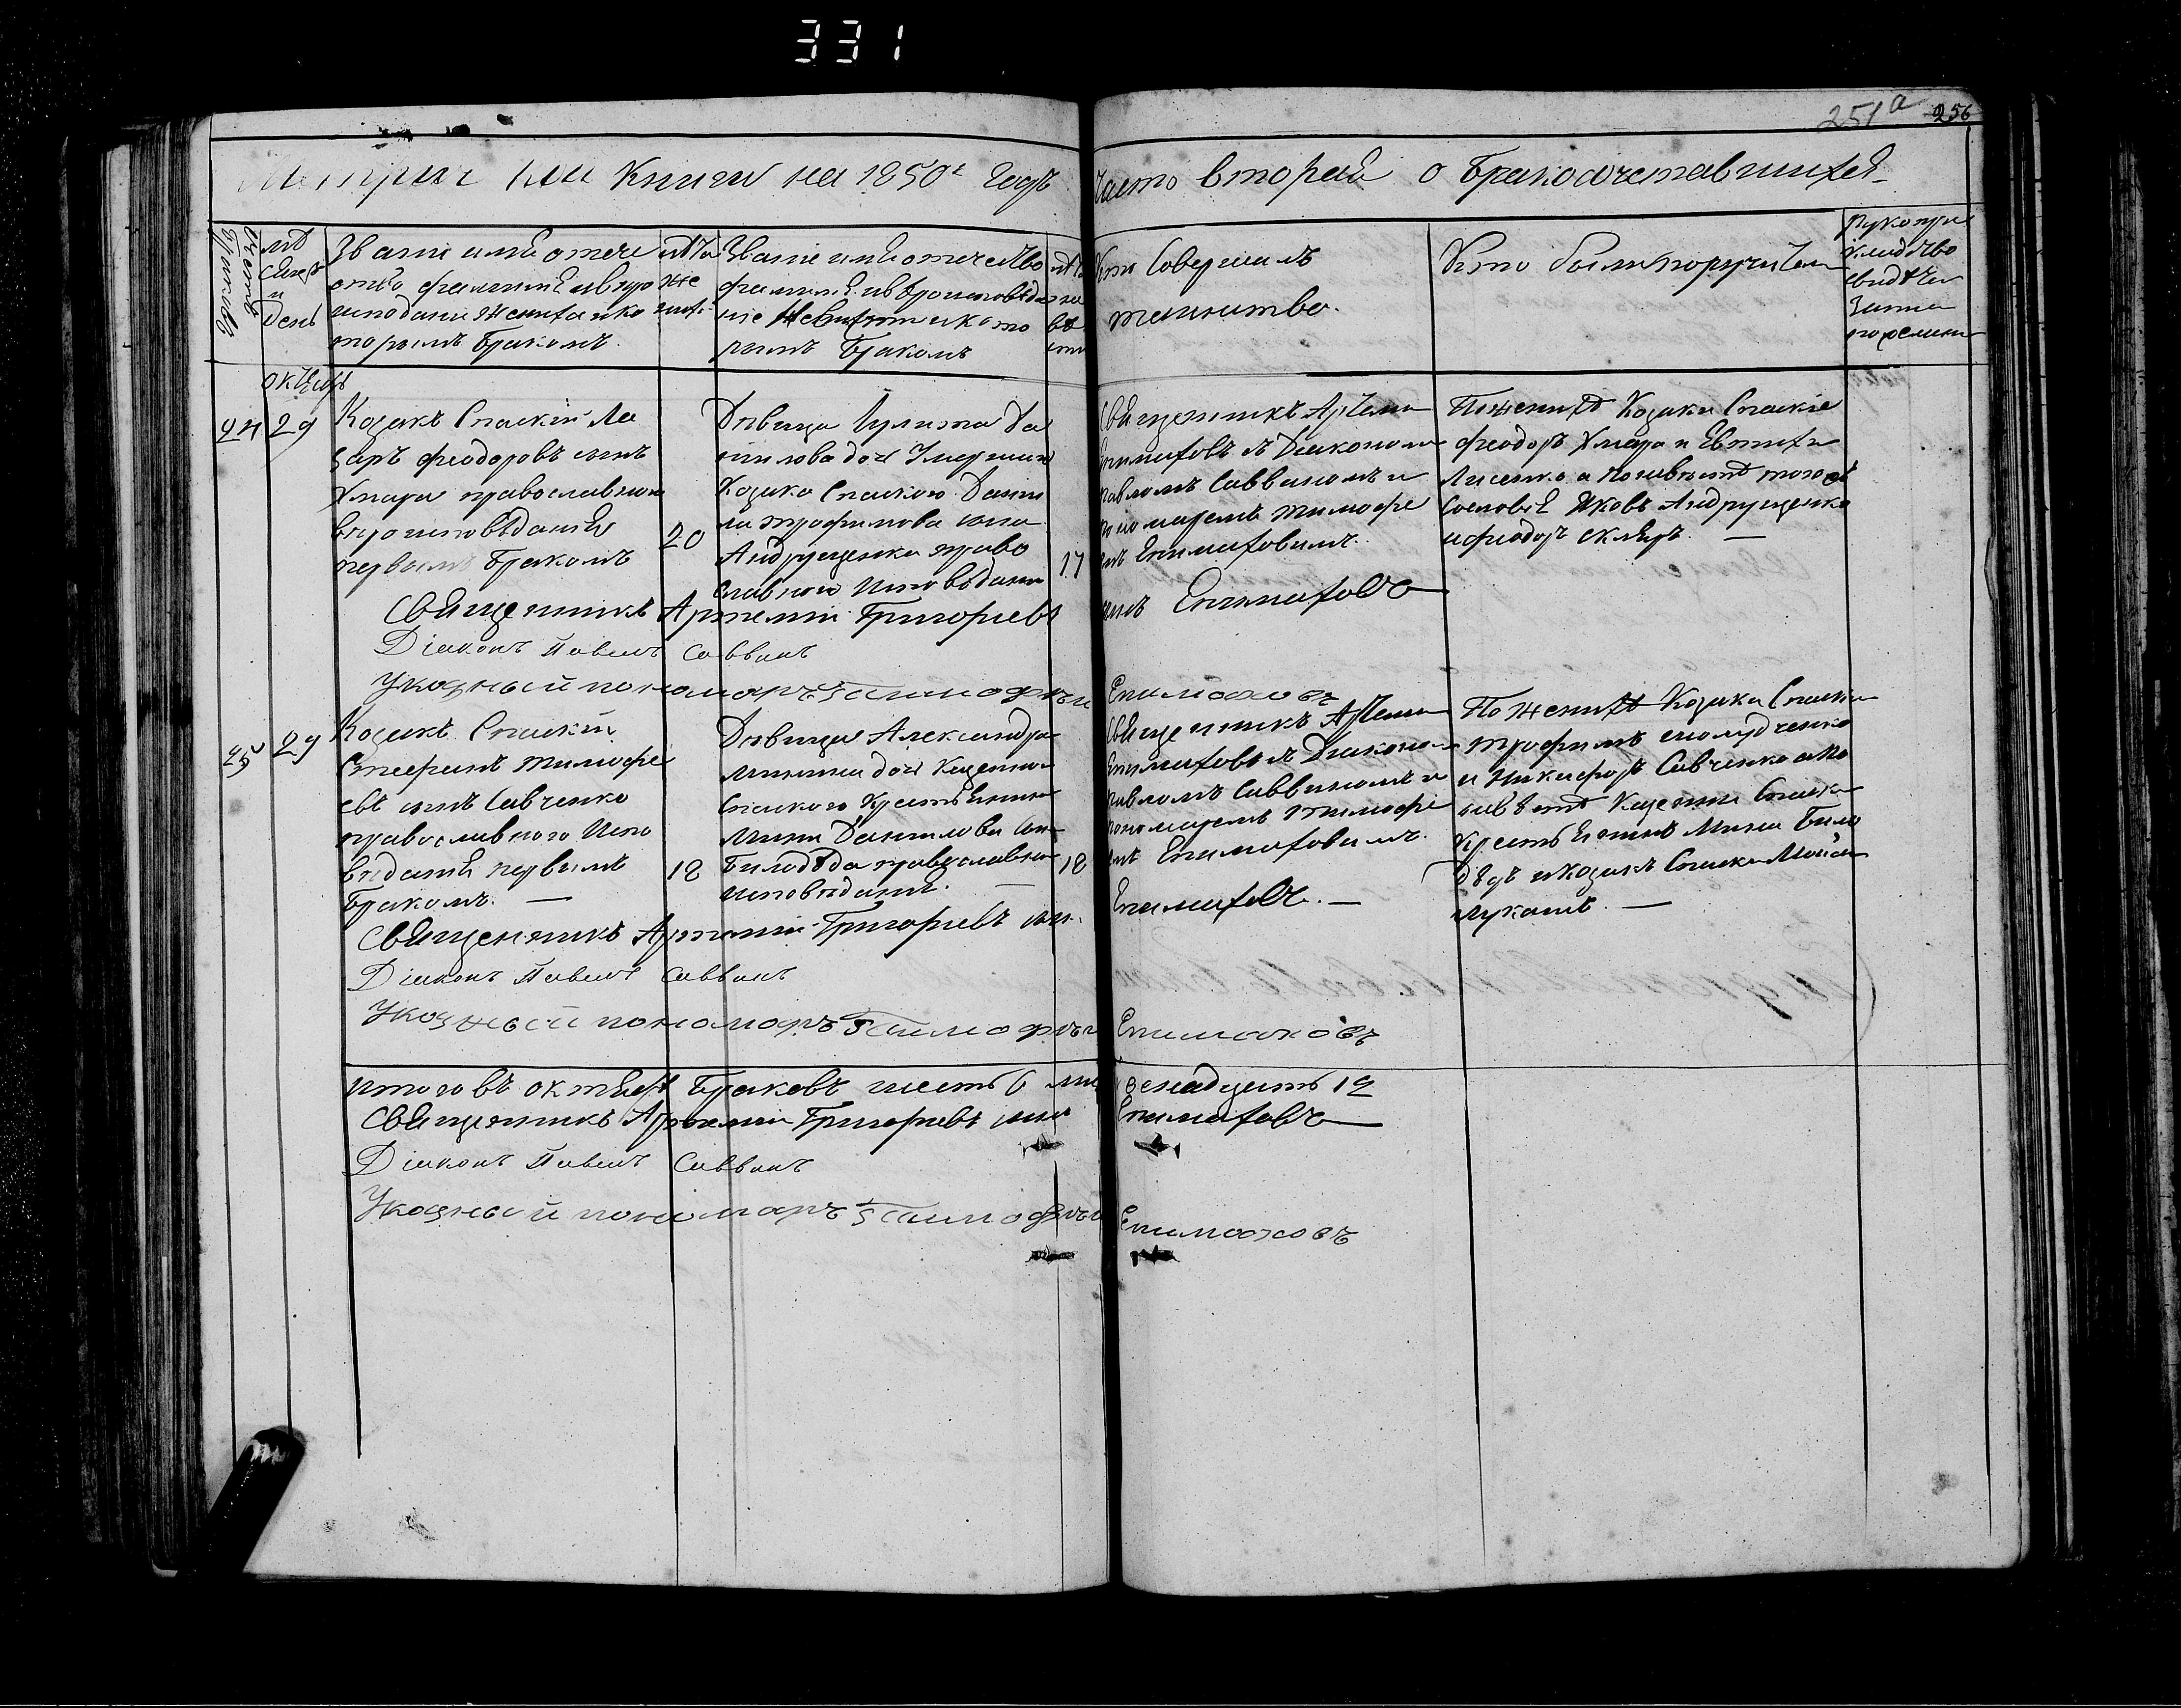 331
251а 256
Метрической Книги на 1850й Годъ Часть вторая о бракосочетавшихся
Счетъ браковъ
мѣ
сяцъ
и
День
Званіе имя отече
ство фамилія и вѣро
исповѣданіе жениха и ко
торымъ бракомъ.
лѣта
же
ниха
Званіе имя отечество
фамилія и вѣроисповѣда
ніе невѣсты и кото
рымъ бракомъ
лѣта
не
вѣ
сты
Кто Совершалъ
таинство.
Кто были поручители
Рукопри
кладство
свидѣтел
записи
по желанію
октября
24 29
Козакъ Спаскій Ла
заръ Феодоровъ сынъ
Хмара православнаго
вѣроисповѣданія
первымъ бракомъ
20
Дѣвица Іулита Да
ніилова дочь Умершаго
Козака Спаского Дани
ла Трофимова сына
Андрущенка право
славного Исповѣданія
17
Священникъ Артемій
Епимаховъ съ Діакономъ
Павломъ Саввинымъ и
пономаремъ Тимофе
емъ Епимаховымъ.
По женихѣ Козаки Спаскіе
Феодоръ Хмара и Евтихій
Лисенко а по невѣстѣ того жъ
Сословія Яковъ Андрущенко
и Феодоръ Скляръ.
Священникъ Артемій Григорьевъ сынъ Епимаховъ
Діаконъ Павелъ Саввинъ
Указный пономарь Тимофѣй Епимаховъ
25 29
Козакъ Спаскій
Стефанъ Тимофе
евъ сынъ Савченко
православного Испо
вѣданія первымъ
бракомъ.
18
Дѣвица Александра
Минина дочь Казенного
Спаского Крестьянина
Мины Данилова сына
Билодѣда православного
исповѣданія.
18
Священникъ Артемій
Епимаховъ съ Діакономъ
Павломъ Саввинымъ и
пономаремъ Тимофе
емъ Епимаховымъ.
По женихѣ Козаки Спаскіе
Трофимъ
и Никифоръ Савченко а по
невѣстѣ Казенный Спаскій
Крестьянинъ Мина Било
дѣдъ и козакъ Спаскій
Лукашъ.
Священникъ Артемій Григорьевъ сынъ Епимаховъ.
Діаконъ Павелъ Саввинъ
Указный пономарь Тимофѣй Епимаховъ
Итого въ октябрѣ браковъ шесть 6 лицъ двенадцать 12
Священникъ Артемій Григорьевъ сынъ Епимаховъ
Діаконъ Павелъ Саввинъ
Указный пономарь Тимофѣй Епимаховъ